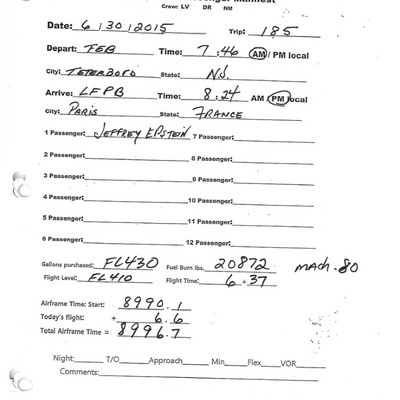 Passenger Manifest
Crew: LV DR NM
Date: 6/30/2015 Trip: 185
Depart: TEB Time: 7:46 AM / PM local
City: TETERBORO State: NJ.
Arrive: LFPB Time: 8:24 AM PM local
City: PARIS State: FRANCE
1 Passenger: JEFFREY EPSTEIN 7 Passenger:
2 Passenger: 8 Passenger:
3 Passenger: 9 Passenger:
4 Passenger: 10 Passenger:
5 Passenger: 11 Passenger:
6 Passenger: 12 Passenger:
Gallons purchased: FL430 Fuel Burn lbs. 20872 MACH .80
Flight Level: FL410 Flight Time: 6 + 37
Airframe Time: Start: 8990.1
Today's flight: + 6.6
Total Airframe Time = 8996.7
Night: T/O Approach Min Flex VOR
Comments: